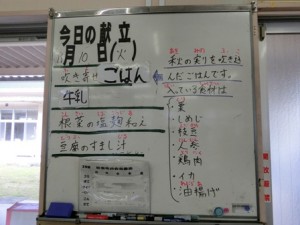 今日の献立
月10日(火)
吹き寄せごはん
牛乳
根菜の塩麹和え
豆腐のすまし汁
秋の実りを吹き込
んだごはんです。
入っている食材は
・栗
・しめじ
・枝豆
・人参
・鶏肉
・イカ
・油揚げ